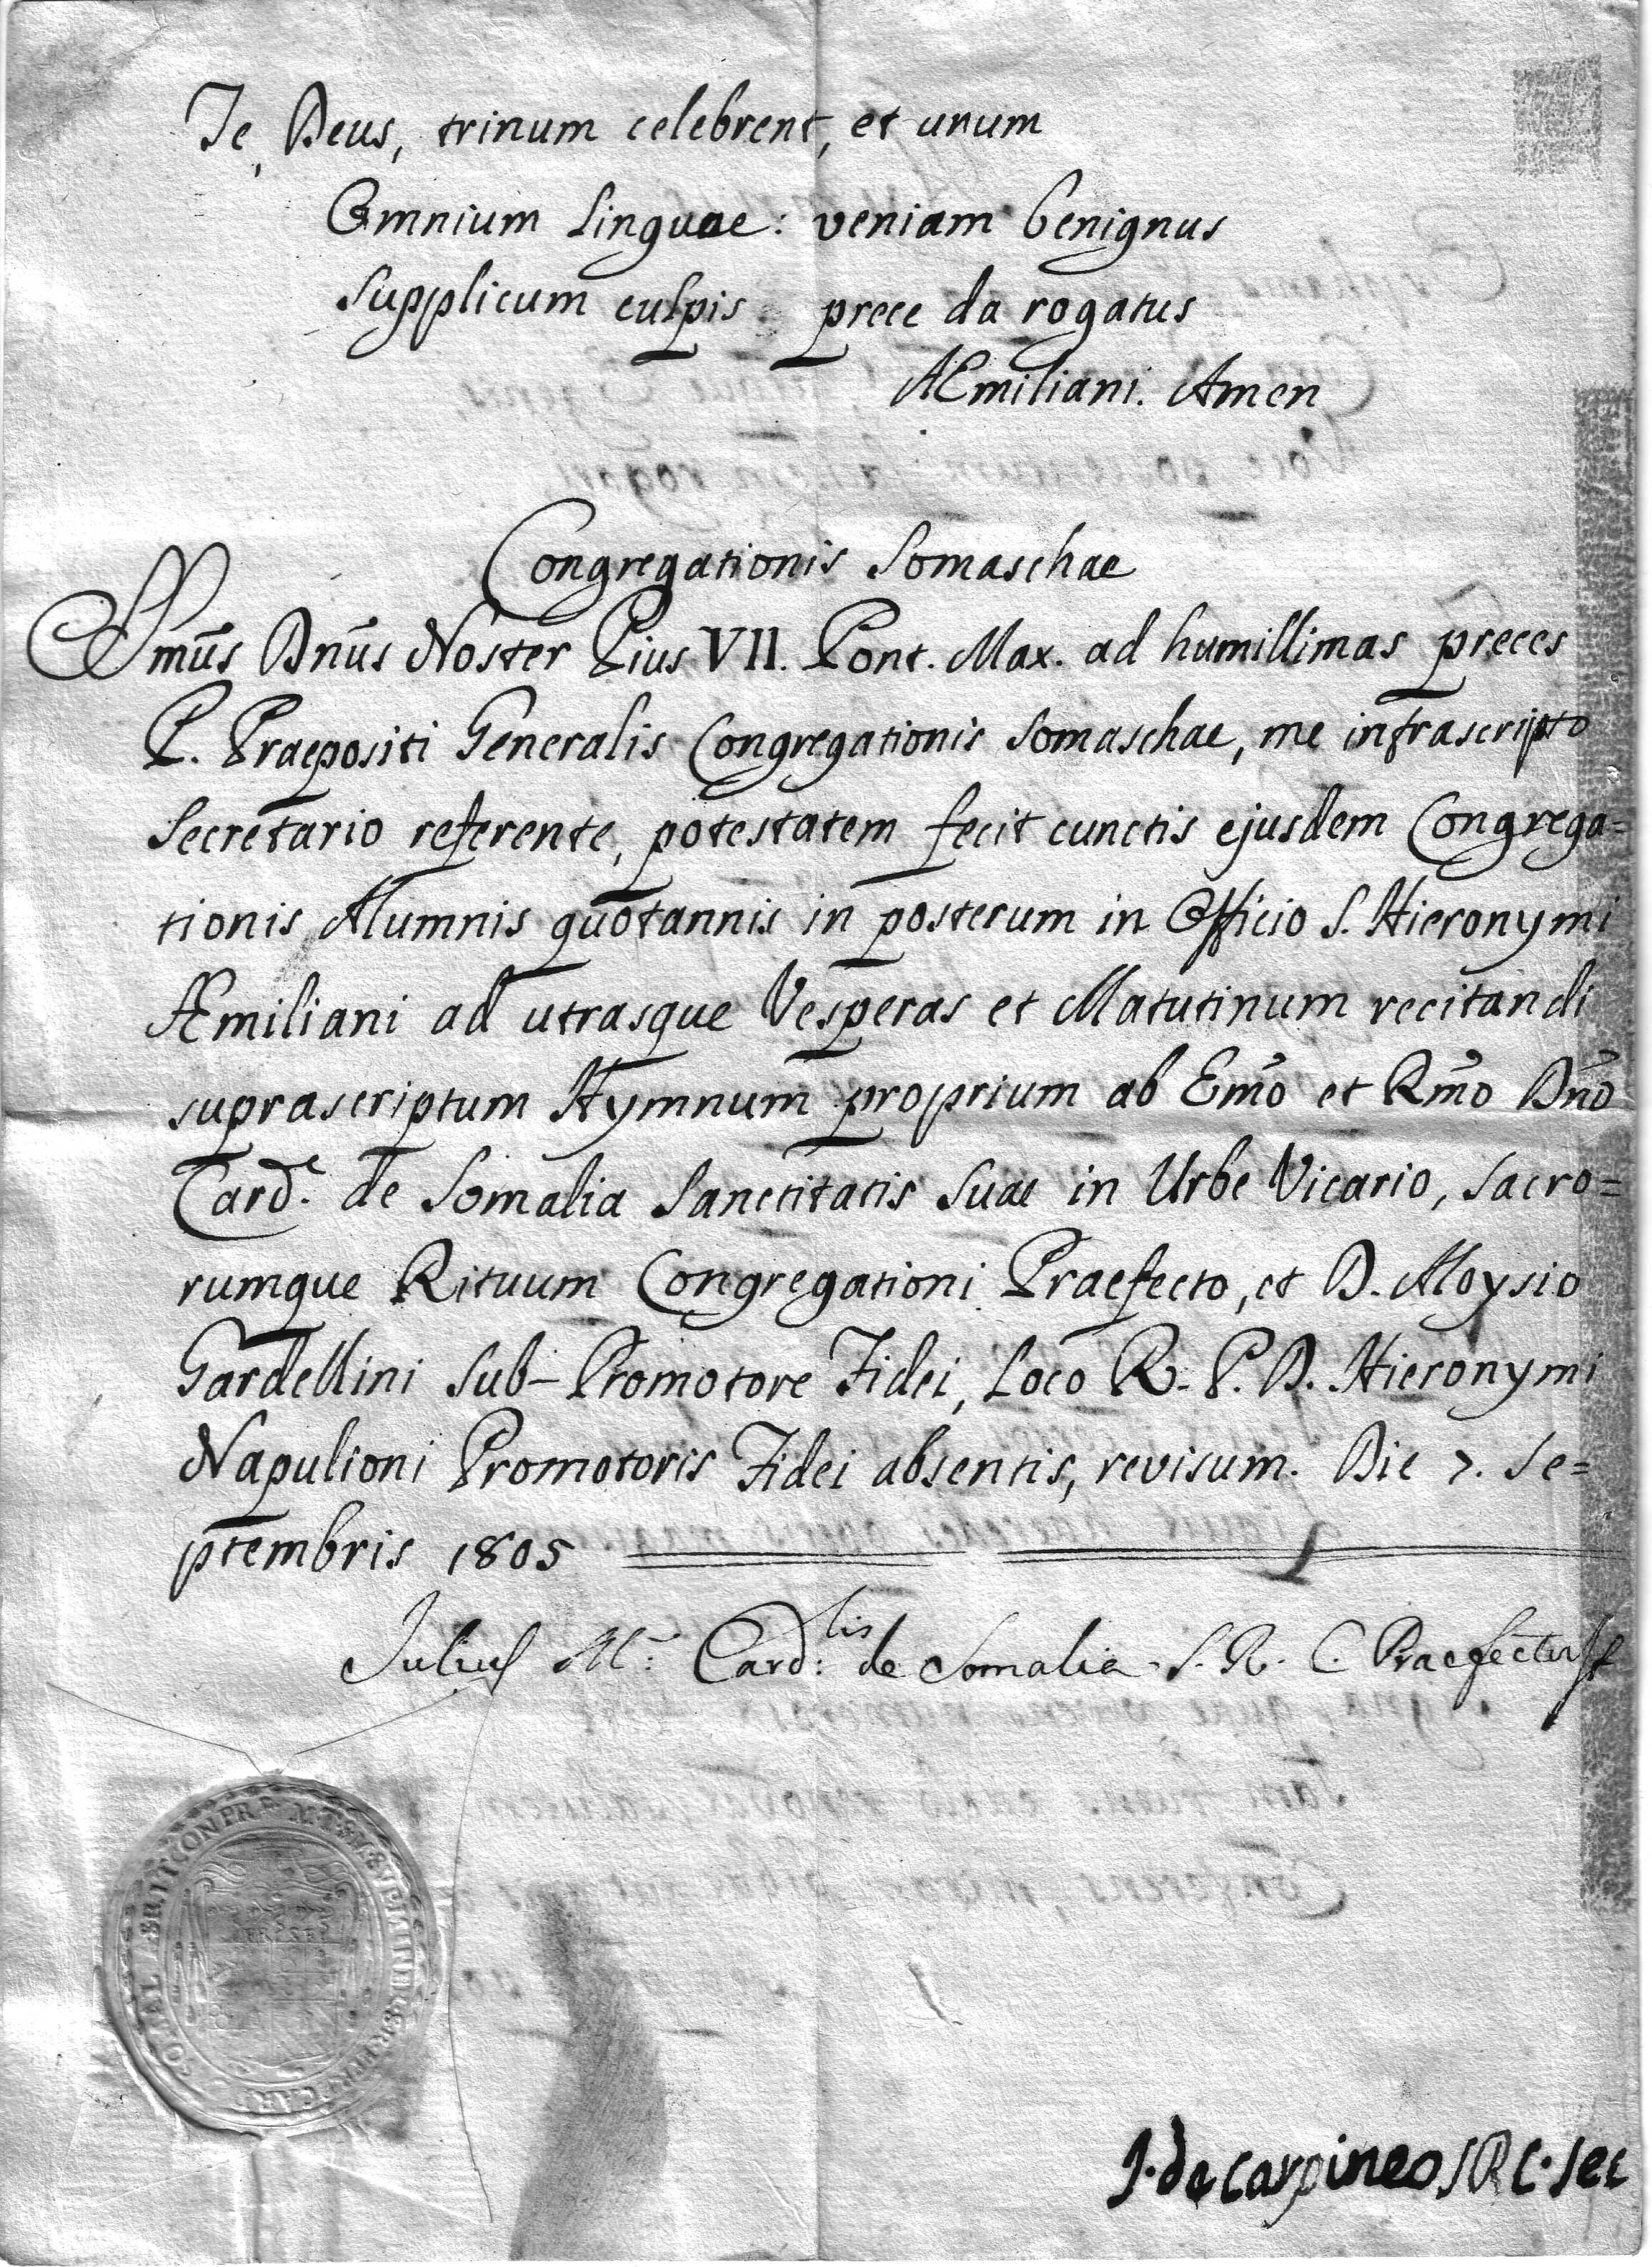 Te, Deus, trinum celebrent, et unum
Omnium Linguae: veniam benignus
Supplicum culpis prece da rogatus
Æmiliani. Amen
Congregationis Somaschae
Smūs Dnūs Noster Pius VII. Pont. Max. ad humillimas preces
P. Praepositi Generalis Congregationis Somaschae, me infrascripto
Secretario referente, potestatem fecit cunctis ejusdem Congrega=
tionis Alumnis quotannis in posterum in Officio S. Hieronymi
Æmiliani ad utrasque Vesperas et Matutinum recitandi
suprascriptum Hymnum proprium ab Emō et Rmō Dnō
Card.e de Somalia Sanctitatis Suae in Urbe Vicario, Sacro=
rumque Rituum Congregationi Praefecto, et D. Aloysio
Gardellini Sub-Promotore Fidei, Loco R. P. D. Hieronymi
Napulioni Promotoris Fidei absentis, revisum. Die 7. Se=
ptembris 1805
Julius M.a Card.lis de Somalia S. R. C. Praefectus
J. de Carpineo S R C. Sec